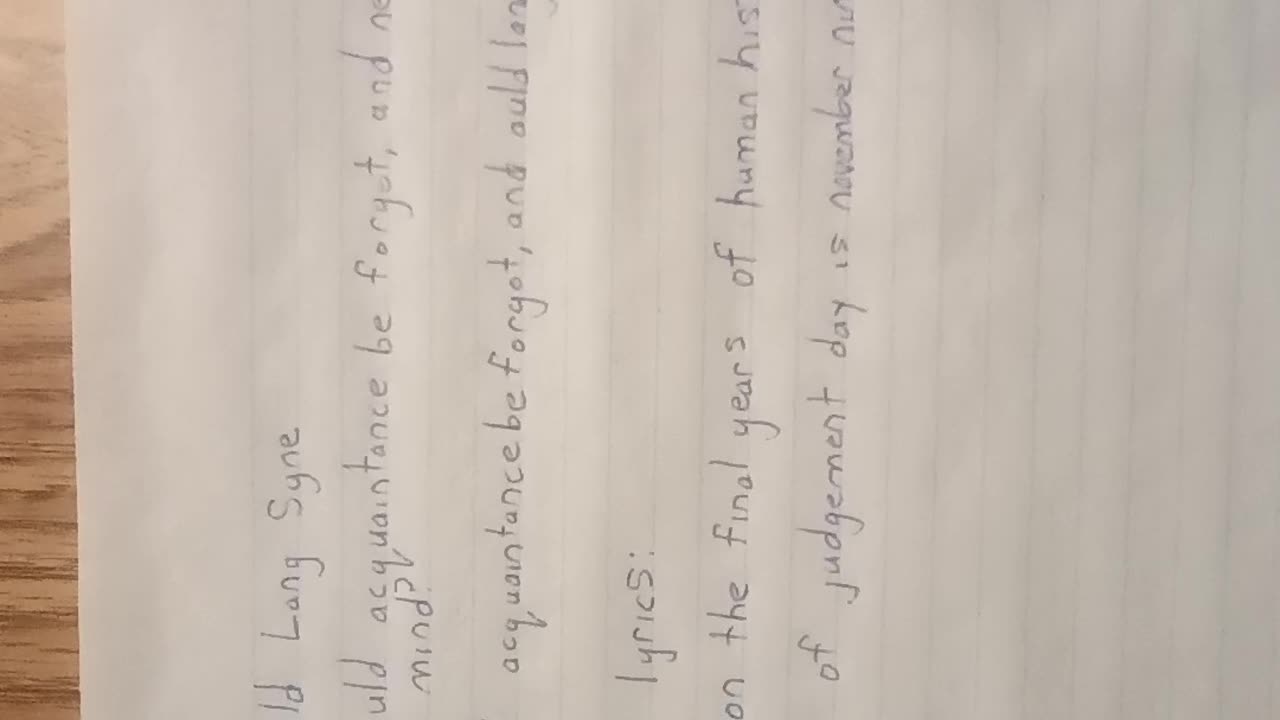 ld Lang Syne
uld acquaintance be forgot, and ne
mind?
acquaintance be forgot, and auld lan
lyrics:
on the final years of human his
of judgement day is november nu